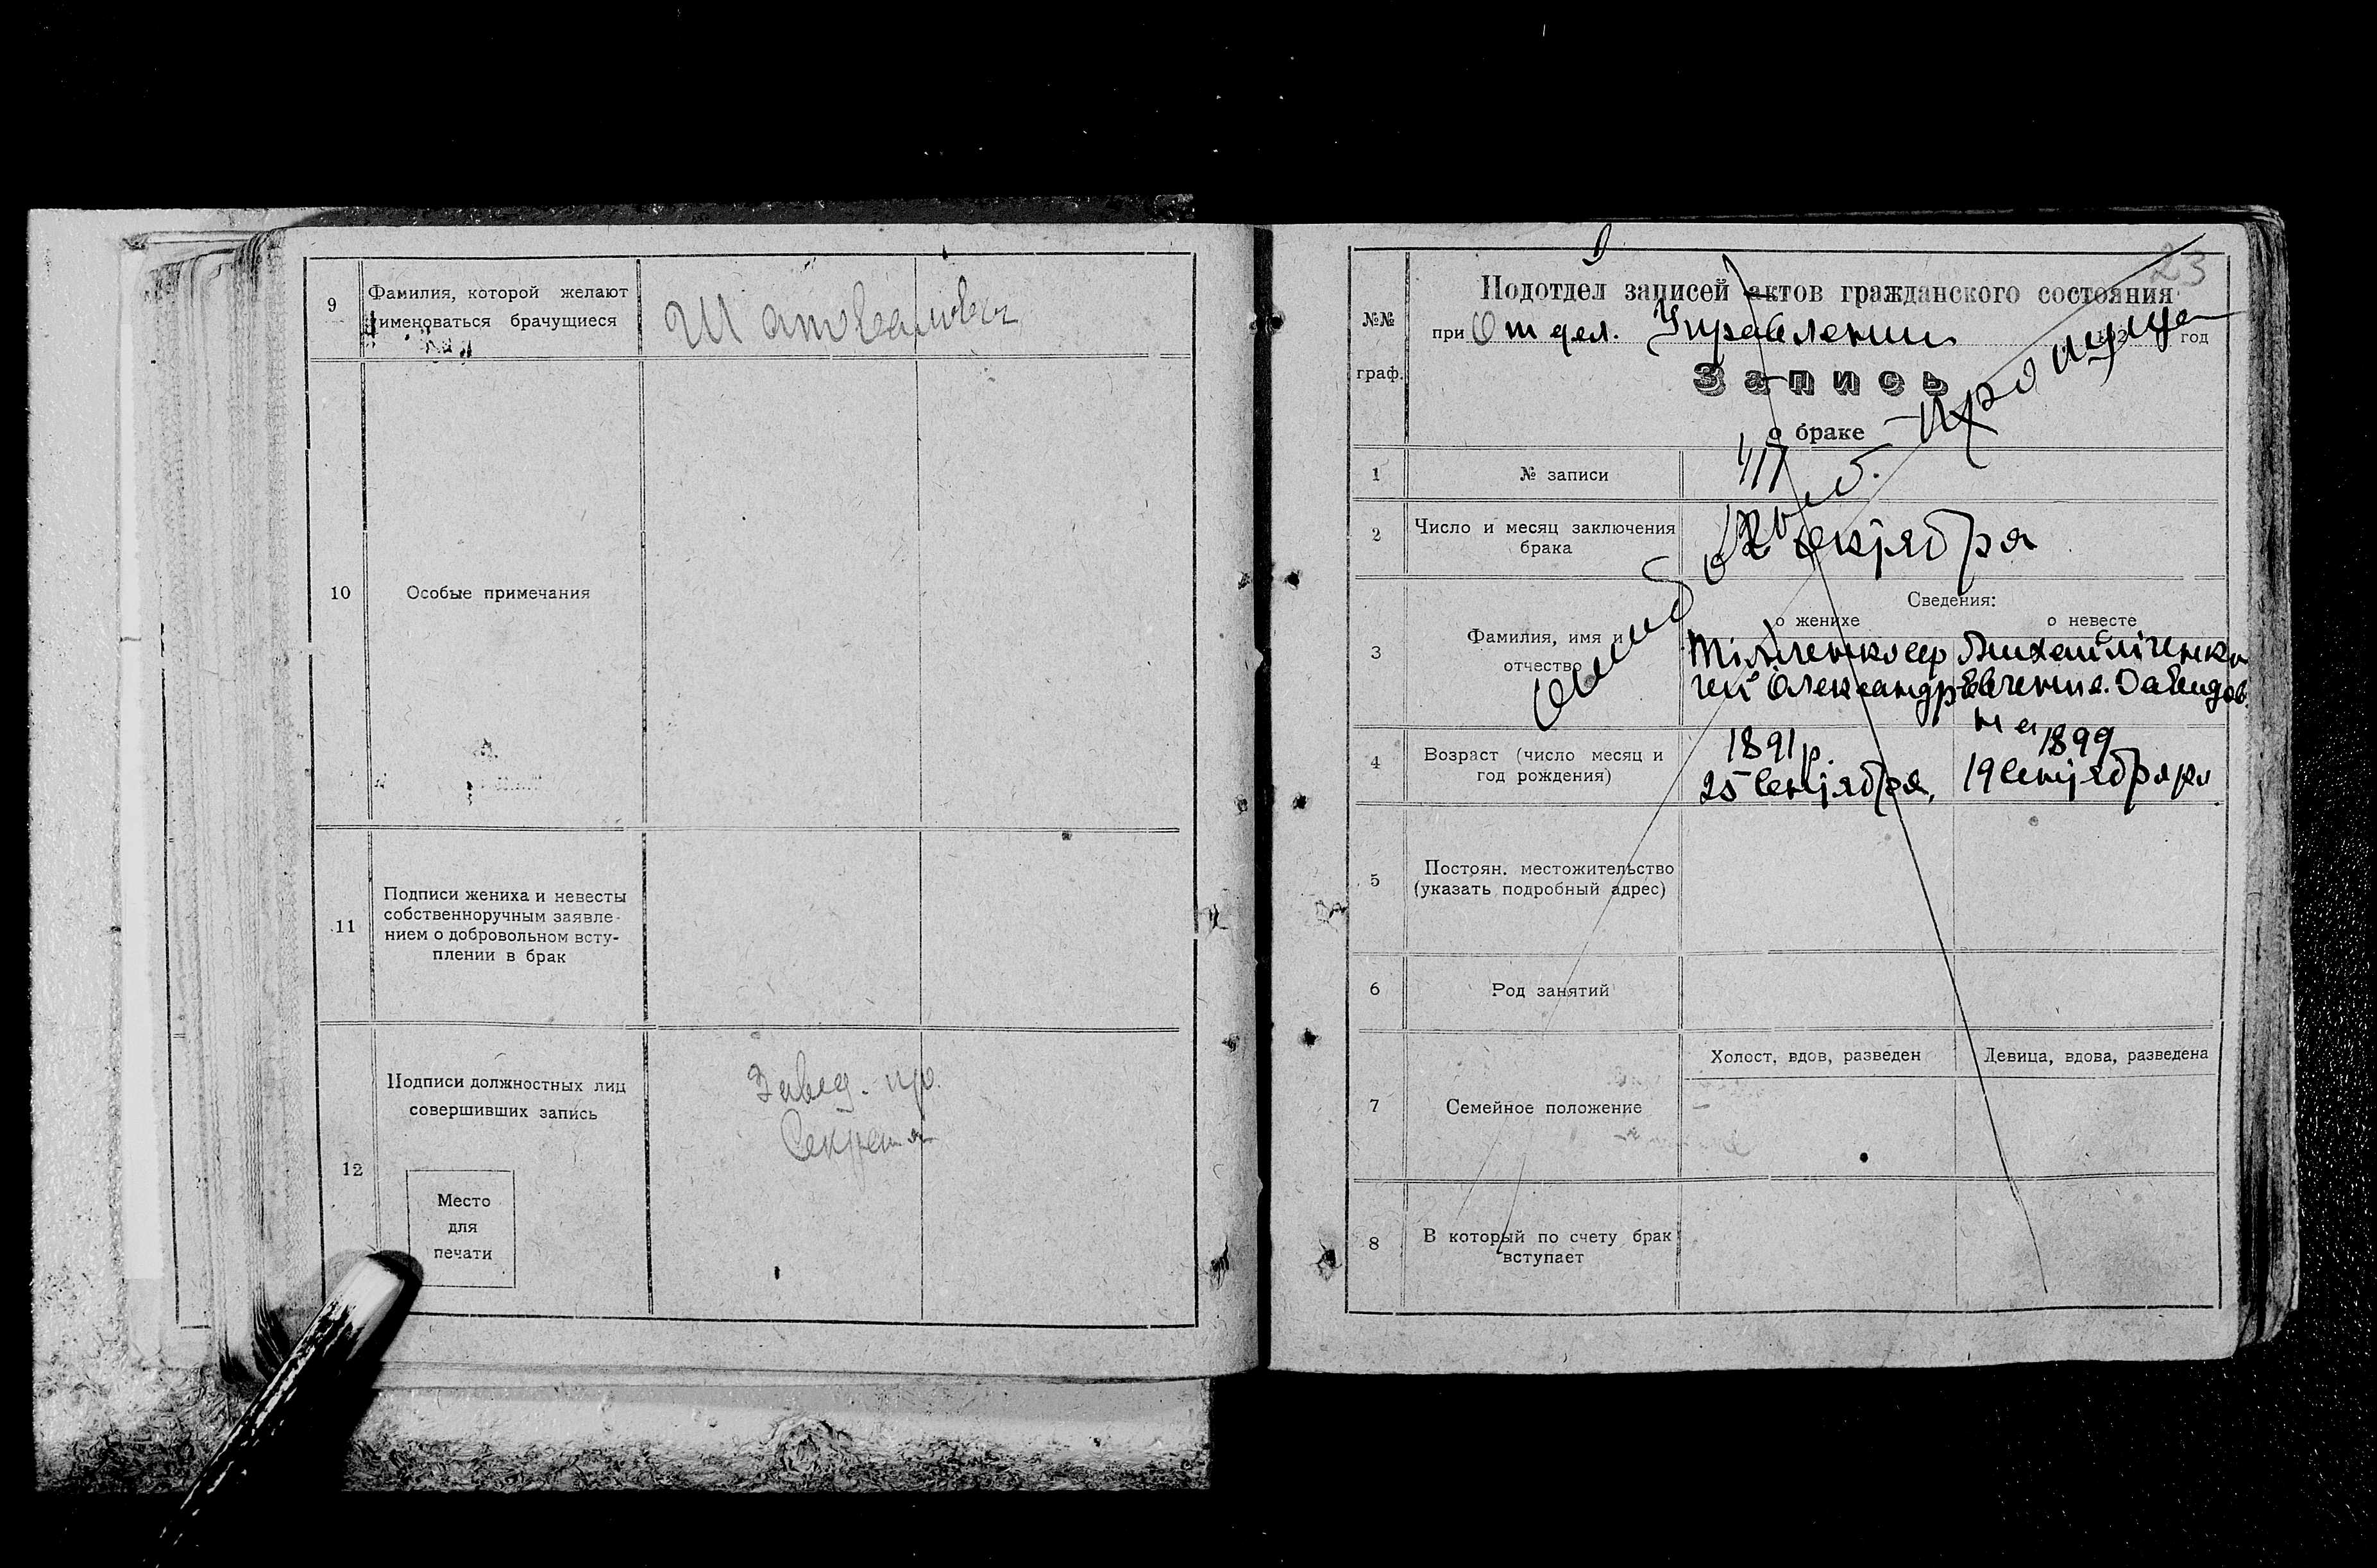 9
Фамилия, которой желают
именоваться брачущиеся
Шаповаловы
10
Особые примечания
11
Подписи жениха и невесты
собственноручным заявле-
нием о добровольном всту-
плении в брак
12
Подписи должностных лиц
совершивших запись
Завед. пр.
Секрет
Место
для
печати
23
№№
граф.
Подотдел записей актов гражданского состояния
при Отдел. Управлении год
Запись
о браке
1
№ записи
2
Число и месяц заключения
брака
октября
3
Фамилия, имя и
отчество
Сведения:
о женихе
о невесте
гей Олександр
Евгения Давидов
на
4
Возраст (число месяц и
год рождения)
1891 р.
25 Сентября,
1899
19 Сентября
5
Постоян. местожительство
(указать подробный адрес)
6
Род занятий
7
Семейное положение
Холост, вдов, разведен
Девица, вдова, разведена
8
В который по счету брак
вступает